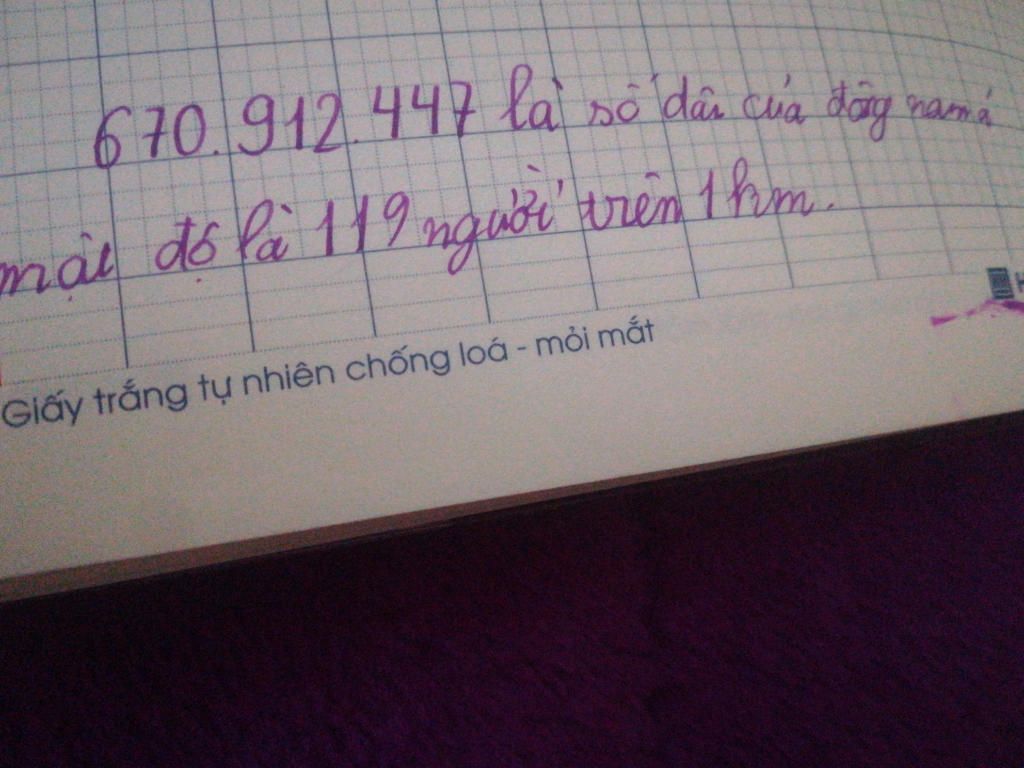 670.912.447 là số dân của đông nam á
mật độ là 119 người trên 1 km.
Giấy trắng tự nhiên chống loá - mỏi mắt